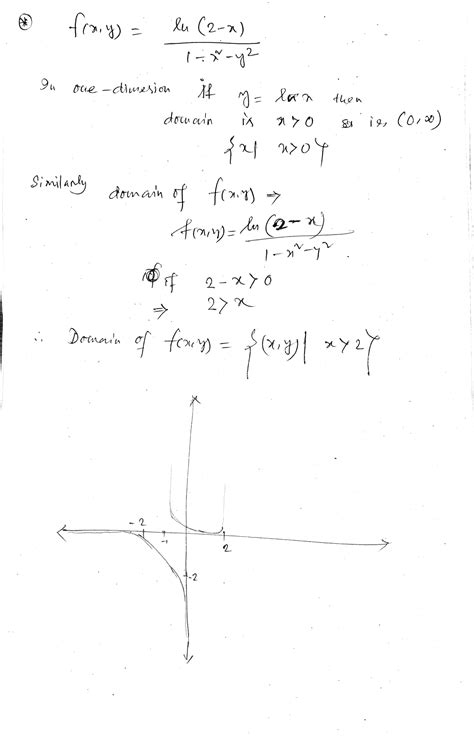 * f(x,y) = ln (2-x) / 1-x²-y²
In one-dimension if y = ln x then
domain is x>0 ie, (0,∞)
{x| x>0}
Similarly domain of f(x,y) ⇒
f(x,y) = ln (2-x) / 1-x²-y² .
if 2-x>0
⇒ 2>x
∴ Domain of f(x,y) = {(x,y)| x>2}
-2 -1 2
-2